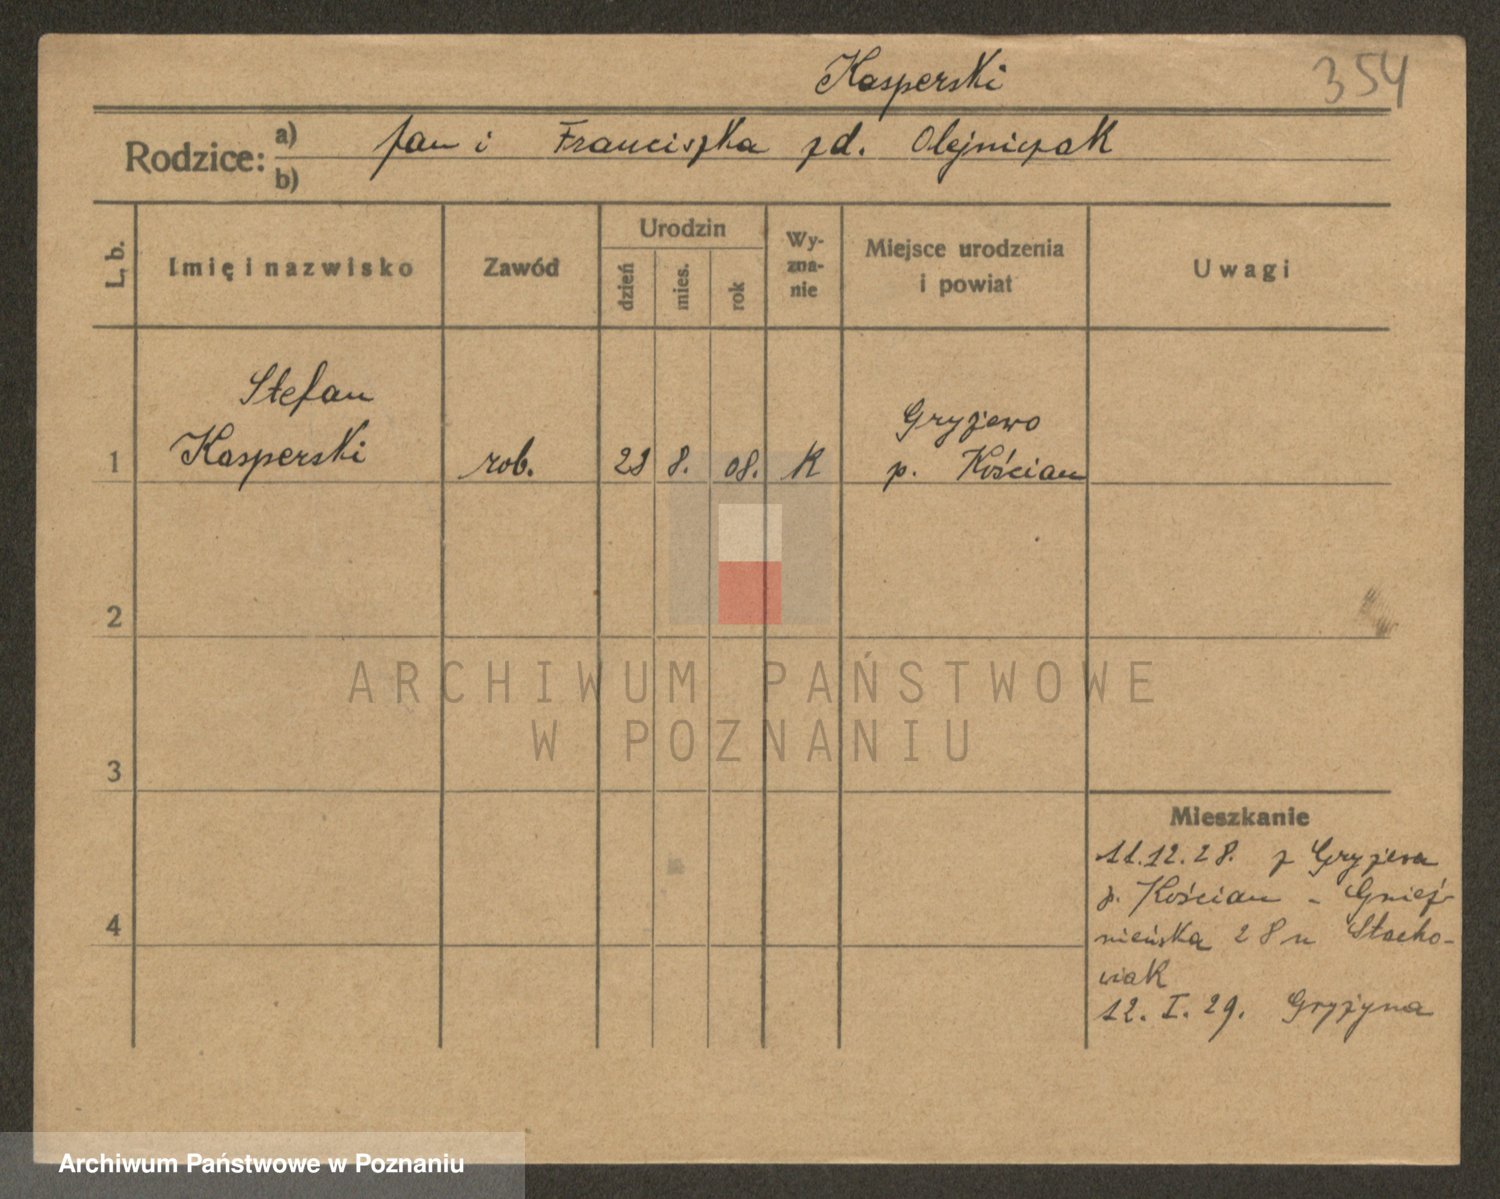 Kasperski 354
Rodzice: a) Jan i Franciszka zd. Olejniczak
b)
L. b. Imię i nazwisko Zawód Urodzin Wy- Miejsce urodzenia Uwagi
dzień mies. rok zna- i powiat
nie
Stefan
Gryżewo
1 Kasperski rob. 28 8. 08. K p. Kościan
2
ARCHIWUM PAŃSTWOWE
W POZNANIU
3
Mieszkanie
11.12.28. z Gryżewa
p. Kościan - Gnieź-
4
nieńska 28 u Stacho-
wiak
12. I. 29. Gryżyna
Archiwum Państwowe w Poznaniu